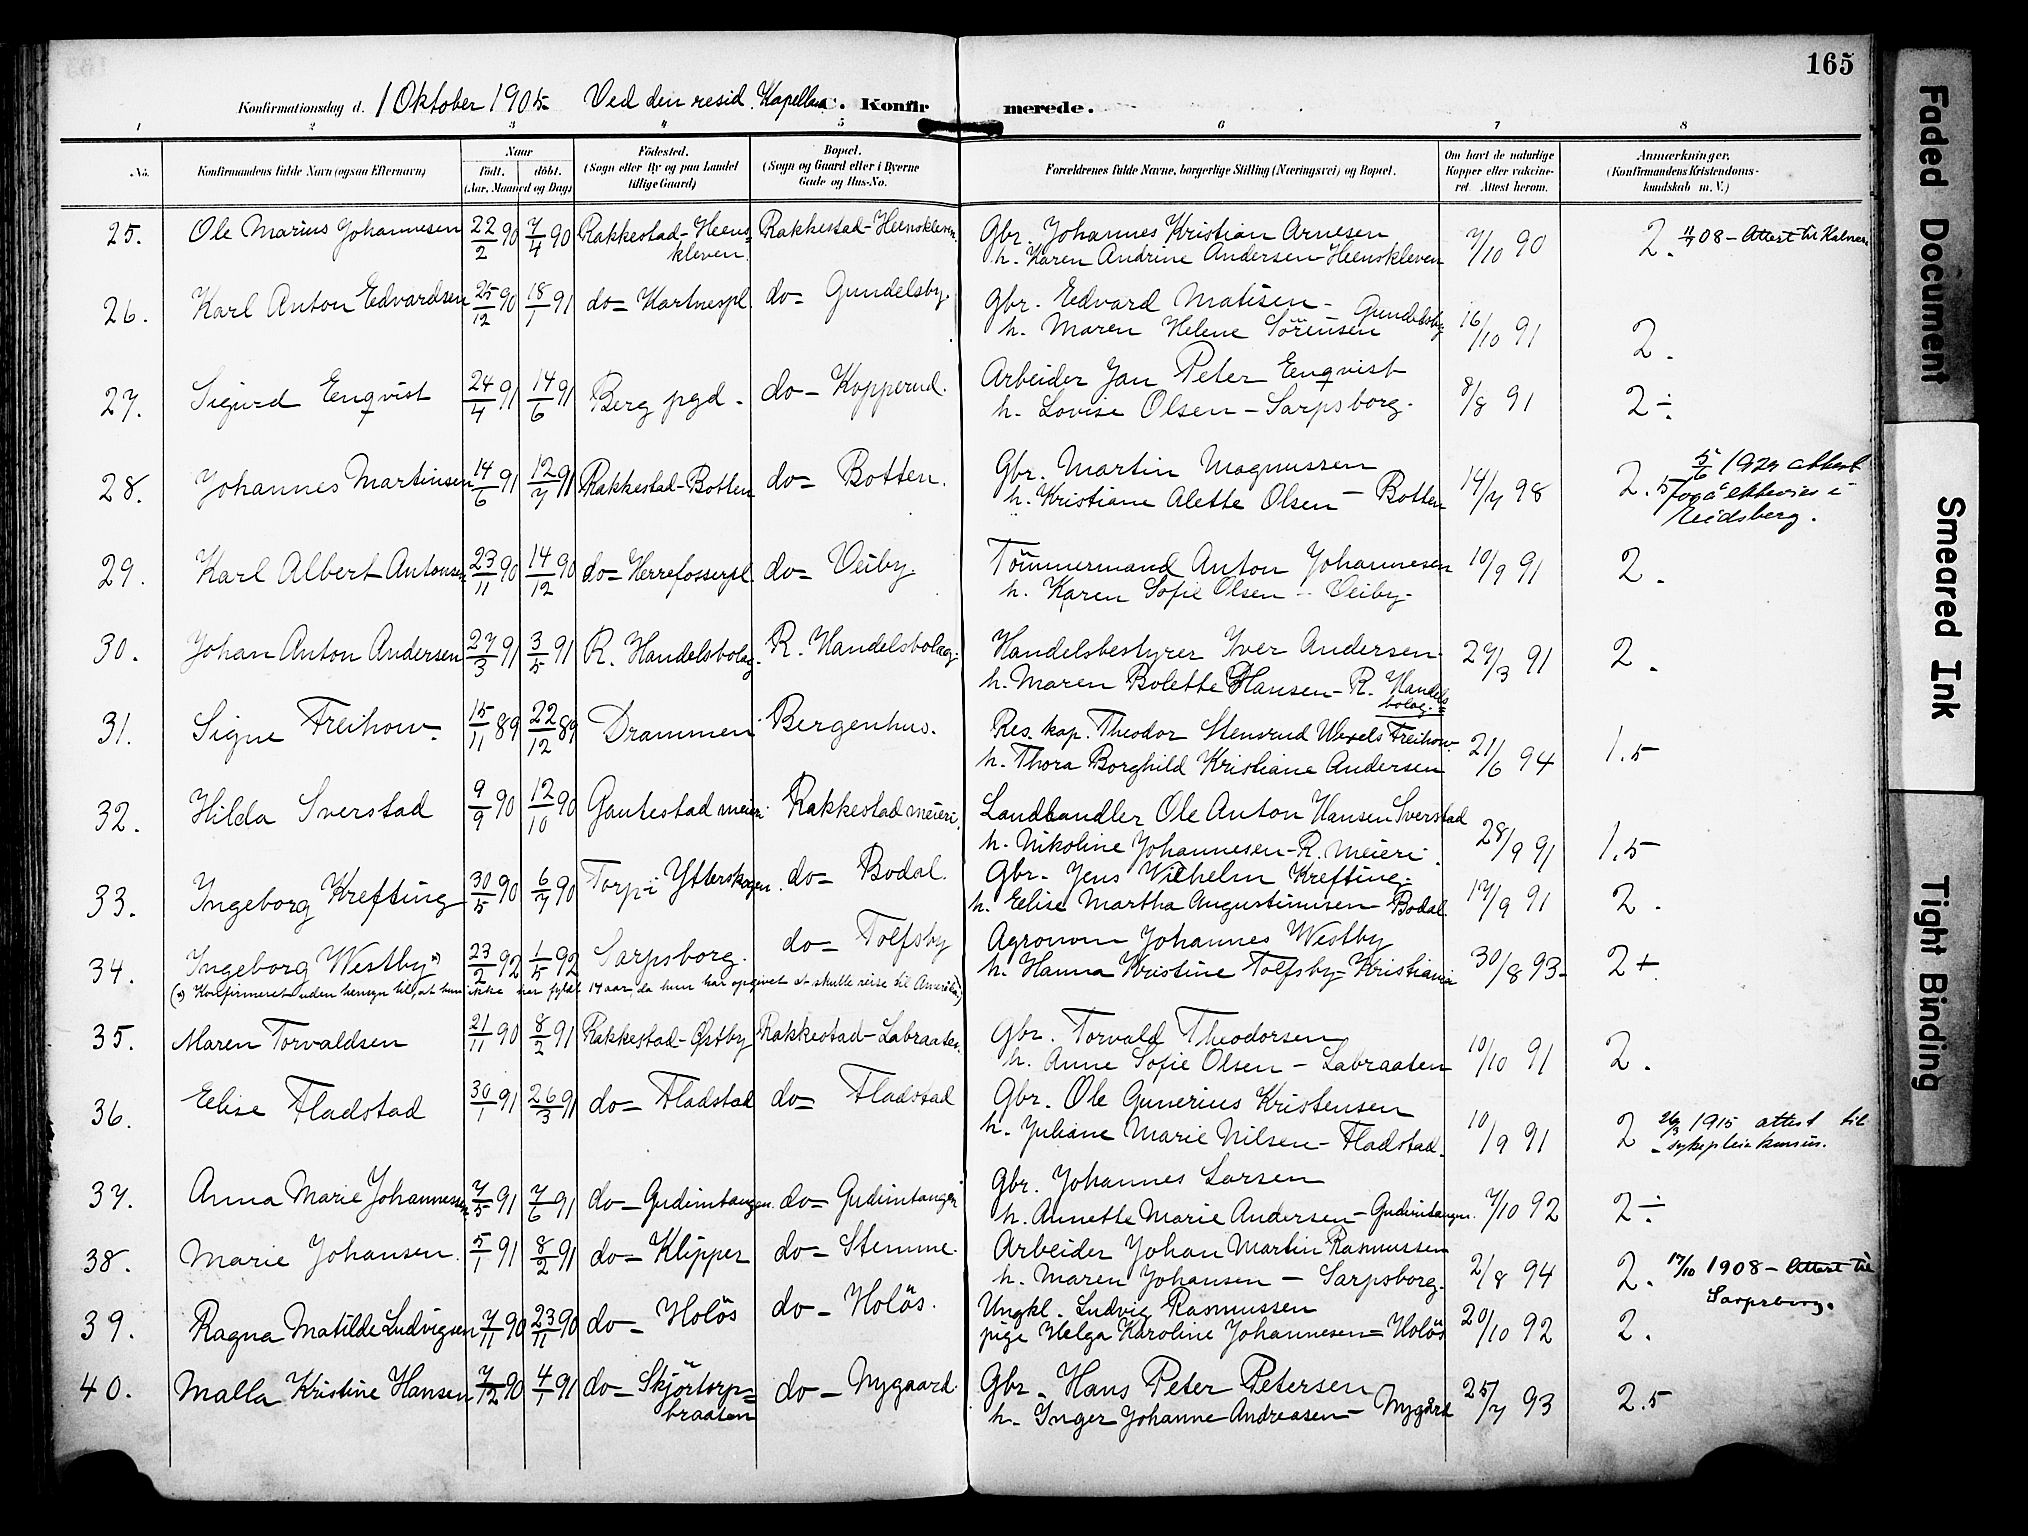 165
Konfirmationsdag d. 1 Oktober 1905 Ved den resid. Kapellan C. Konfirmerede.
1 2 3 4 5 6 7 8
No. Konfirmandens fulde Navn (ogsaa Efternavn) Naar Födt. döbt. (Aar, Maaned og Dag) Födested. (Sogn eller By og paa Landet tillige Gaard) Bopæl. (Sogn og Gaard eller i Byerne Gade og Hus-No. Forældrenes fulde Navne, borgerlige Stilling (Næringsvei) og Bopæl. Om havt de naturlige Kopper eller vakcineret. Attest herom. Anmærkninger. (Konfirmandens Kristendomskundskab m. V.)
25. Ole Marius Johannesen 22/2 90 7/4 90 Rakkestad-Heenskleven. Rakkestad-Heenskleven. Gbr. Johannes Kristian Arnesen
h. Karen Andrine Andersen-Heenskleven 7/10 90 2. 11/7 08 - Attest til Kalnes.
26. Karl Anton Edvardsen 25/12 90 18/1 91 do= Kartnespl. do= Gundelsby. Gbr. Edvard Matisen - Gundelsby
h. Maren Helene Sörensen 16/10 91 2.
27. Sigurd Enqvist 24/4 91 14/6 91 Berg pgd. do- Kopperud. Arbeider Jan Peter Enqvist
h. Lovise Olsen - Sarpsborg. 8/8 91 2÷
28. Johannes Martinsen 14/6 91 12/7 91 Rakkestad-Botten do= Botten. Gbr. Martin Magnussen
h. Kristiane Alette Olsen - Botten 14/7 98 2.5 5/6 1929 attest
for å ektevies i
Eidsberg.
29. Karl Albert Antonsen 23/11 90 14/12 90 do= Herrefosserpl. do= Veiby. Tömmermand Anton Johannesen
h. Karen Sofie Olsen - Veiby. 10/9 91 2.
30. Johan Anton Andersen 27/3 91 3/5 91 R. Handelsbolag. R. Handelsbolag. Handelsbestyrer Iver Andersen
h. Maren Bolette Hansen - R. Handelsbolag. 27/3 91 2.
31. Signe Freihow. 15/11 89 22/12 89 Drammen Bergenhus. Res. kap. Theodor Stensrud Wexels Freihow.
h. Thora Borghild Kristiane Andersen 21/6 94 1.5
32. Hilda Sverstad 9/9 90 12/10 90 Gautestad meieri. Rakkestad meieri. Landhandler Ole Anton Hansen Sverstad
h. Nikoline Johannesen - R. meieri. 28/9 91 1.5
33. Ingeborg Krefting 30/5 90 6/7 90 Torp i Ytterskogen. do= Bodal. Gbr. Jens Wilhelm Krefting.
h. Elise Martha Augustinusen - Bodal. 17/9 91 2.
34. Ingeborg Westby *) 23/2 92 1/5 92 Sarpsborg. do= Tolfsby Agronom Johannes Westby
h. Hanna Kristine Tolfsby - Kristiania 30/8 93 2+
(*) Konfirmeret uden hensyn til, at hun ikke har fyldt 14 aar, da hun har opgivet at skulle reise til Amerika)
35. Maren Torvaldsen 21/11 90 8/2 91 Rakkestad-Østby Rakkestad-Labraaten. Gbr. Torvald Theodorsen
h. Anne Sofie Olsen - Labraaten 10/10 91 2.
36. Elise Fladstad 30/1 91 26/3 91 do= Fladstad do= Fladstad Gbr. Ole Gunerius Kristensen
h. Juliane Marie Nilsen - Fladstad. 10/9 91 2 26/3 1915 attest til
sykepleiekursus.
37. Anna Marie Johannessen 7/5 91 7/6 91 do- Gudimtangen. do= Gudimtangen Gbr. Johannes Larsen
h. Annette Marie Andersen - Gudimtangen. 7/10 92 2÷
38. Marie Johansen. 5/1 91 8/2 91 do= Klipper do= Stemme. Arbeider Johan Martin Rasmussen
h. Maren Johansen - Sarpsborg. 2/8 94 2. 17/10 1908 - Attest til
Sarpsborg.
39. Ragna Matilde Ludvigsen 7/11 90 23/11 90 do= Holös do- Holös. Ungkl. Ludvig Rasmussen
pige Helga Karoline Johannesen = Holös 20/10 92 2.
40. Malla Kristine Hansen 7/12 90 4/1 91 do= Skjörtorp=braaten do- Nygaard. Gbr. Hans Peter Petersen
h. Inger Johanne Andreasen - Nygård 25/7 93 2.5
Faded Document
Smeared Ink
Tight Binding